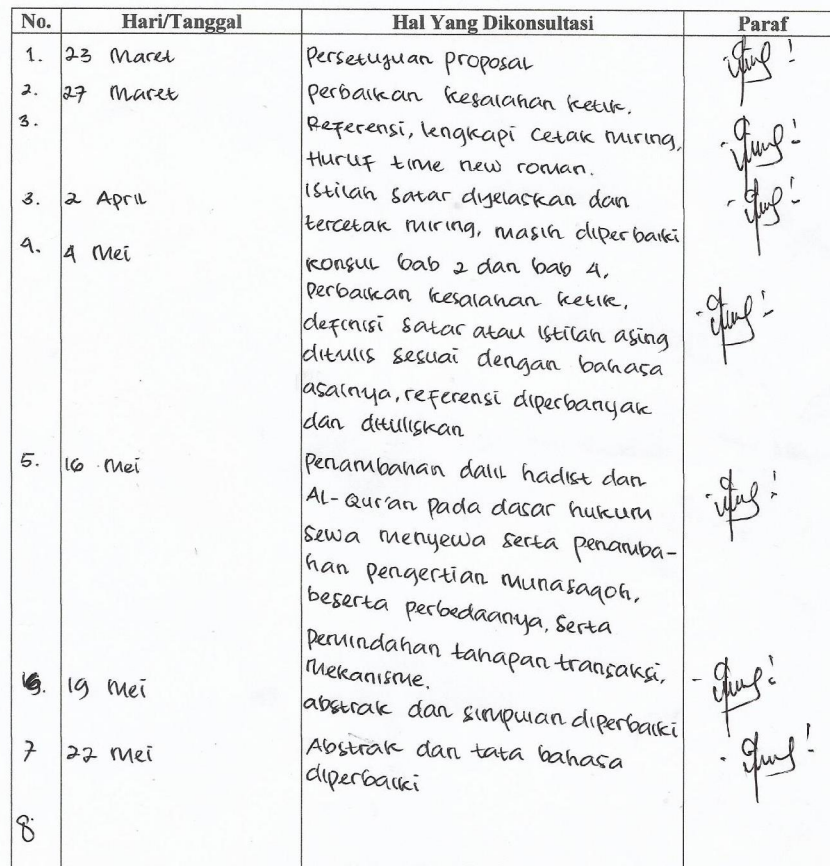 No. Hari/Tanggal Hal Yang Dikonsultasi Paraf
1. 23 Maret Persetujuan proposal
2. 27 Maret perbaikan kesalahan ketik.
3. Referensi, lengkapi cetak miring,
Huruf time new roman.
3. 2 April Istilah Satar dijelaskan dan
tercetak miring, masih diperbaiki
4. 4 Mei konsul bab 2 dan bab 4,
perbaikan kesalahan ketik,
definisi Satar atau istilah asing
ditulis sesuai dengan bahasa
asalnya, referensi diperbanyak
dan dituliskan
5. 16 Mei Penambahan dalil hadist dan
Al-Qur'an pada dasar hukum
sewa menyewa serta penamba-
han pengertian munasaqoh,
beserta perbedaanya, serta
pemindahan tahapan transaksi,
mekanisme.
6. 19 Mei abstrak dan simpulan diperbaiki
7 22 Mei Abstrak dan tata bahasa
diperbaiki
8